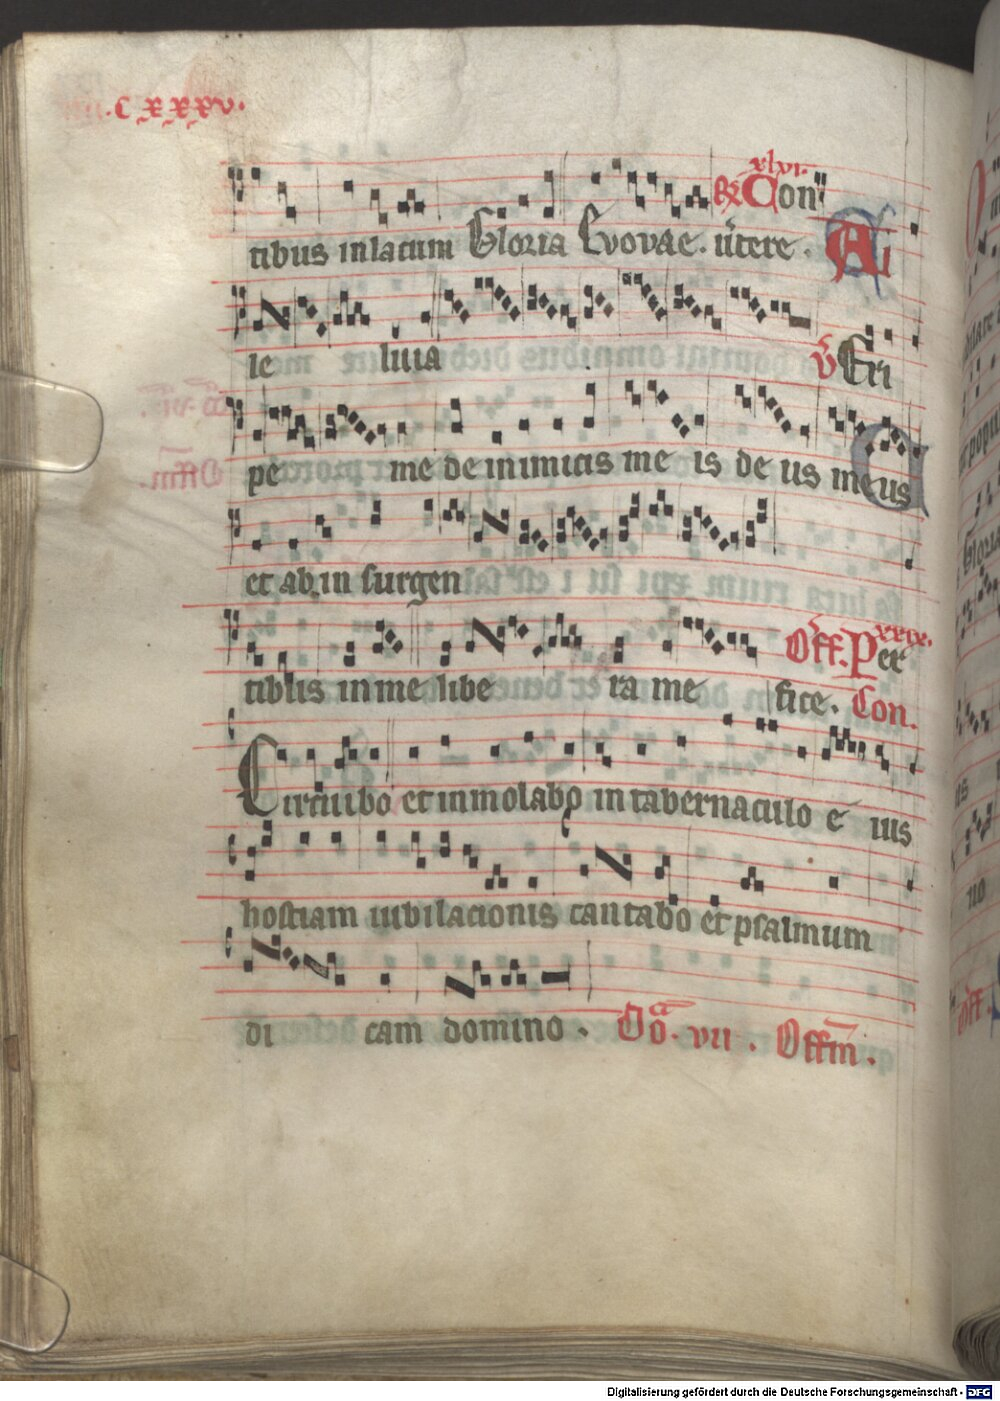 .C xxxv.
xlvi.
tibus in lacum Gloria Evovae. v̄tere. R Con
Al
le luia v̄ Eri
pe me de inimicis me is de us meus
et ab in surgen
xxix.
tibus in me libe ra me Off. Per
fice. Con.
Circuibo et inmolabo in tabernaculo e ius
hostiam iubilacionis cantabo et psalmum
di cam domino. Do. vii. Offm.
Digitalisierung gefördert durch die Deutsche Forschungsgemeinschaft - DFG